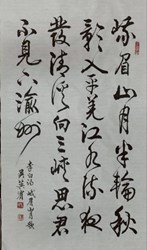 峨眉山月半輪秋
影入平羌江水流夜
發清溪向三峽思君
不見下渝州
李白诗 峨眉山月歌